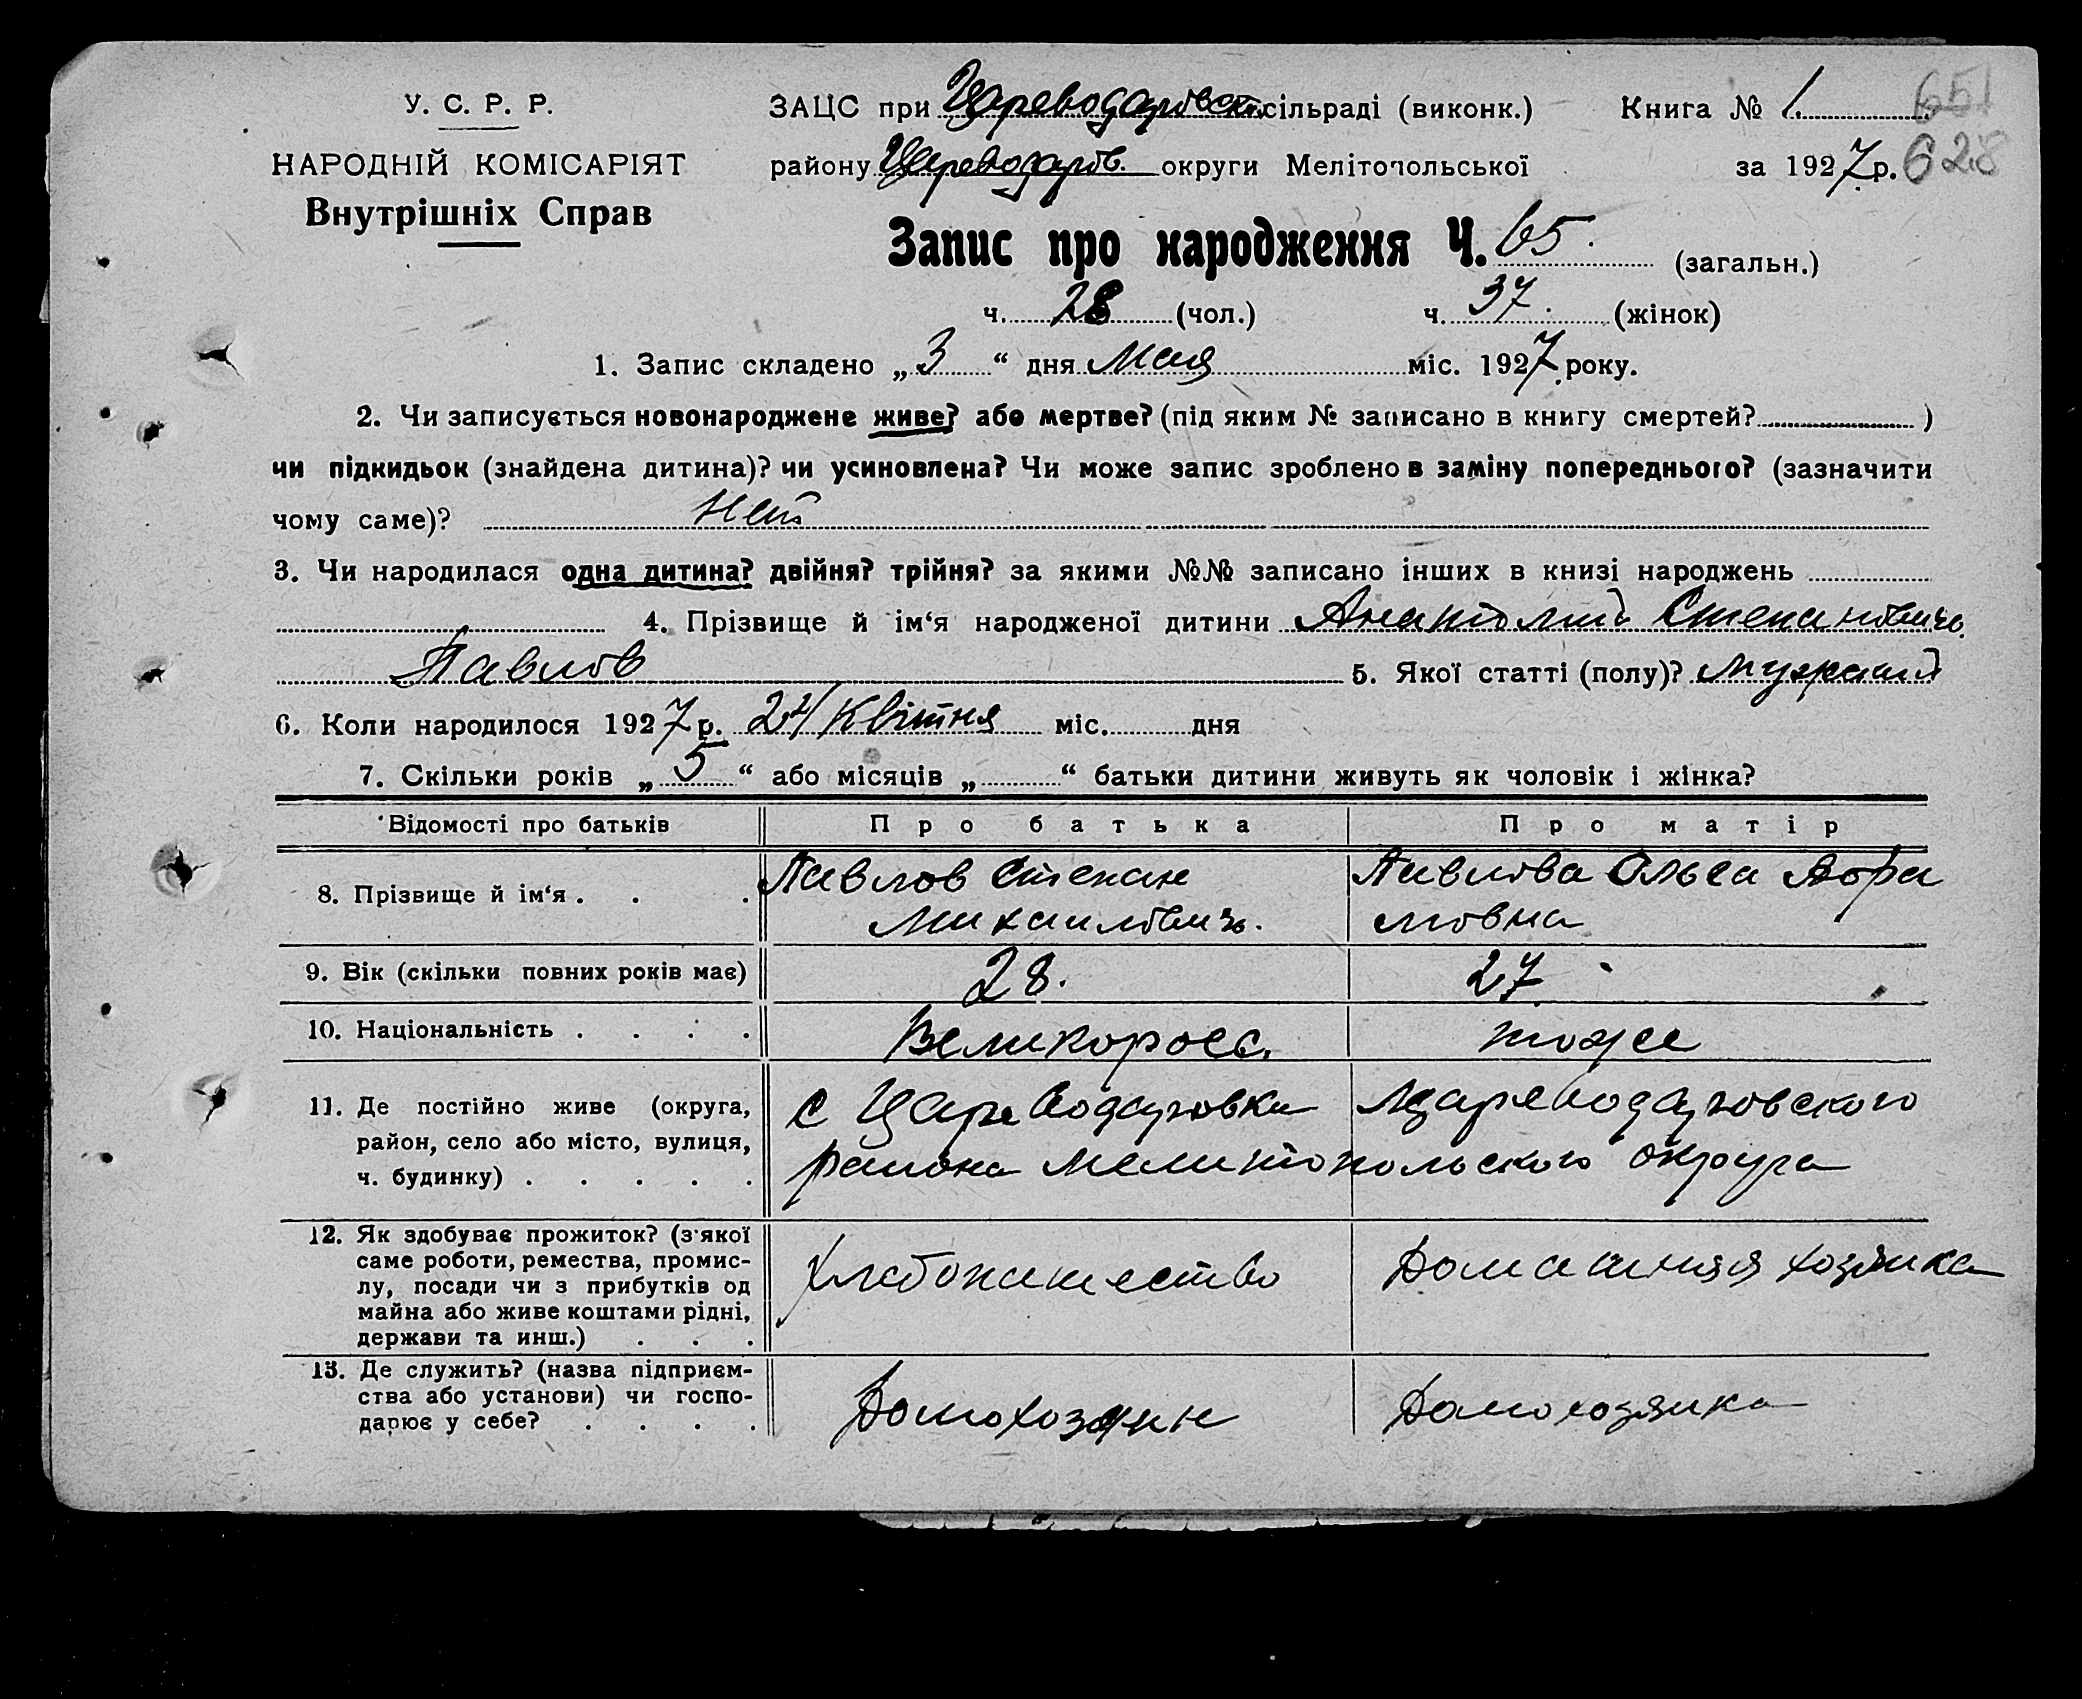 У. С. Р. Р.
НАРОДНІЙ КОМІСАРІЯТ
Внутрішніх Справ
ЗАЦС при Цареводаровск. сільраді (виконк.) Книга № 1. 651
району Цареводаров. округи Мелітопольської за 1927 р. 628
Запис про народження Ч. 65. (загальн.)
ч. 28 (чол.) ч. 37. (жінок)
1. Запис складено „ 3 “ дня Мая міс. 1927 року.
2. Чи записується новонароджене живе? або мертве? (під яким № записано в книгу смертей? )
чи підкидьок (знайдена дитина)? чи усиновлена? Чи може запис зроблено в заміну попереднього? (зазначити
чому саме)? Нет
3. Чи народилася одна дитина? двійня? трійня? за якими №№ записано інших в книзі народжень
4. Прізвище й ім‘я народженої дитини Анатолий Степановичъ
Павлов 5. Якої статті (полу)? Мужский
6. Коли народилося 1927 р. 24 Квітня міс. дня
7. Скільки років „ 5 “ або місяців „ “ батьки дитини живуть як чоловік і жінка?
Відомості про батьків Про батька Про матір
8. Прізвище й ім‘я . . . Павлов Степан Павлова Ольга Абра
Михаиловичъ. мовна
9. Вік (скільки повних років має) 28. 27
10. Національність . . . . Великоросс. тоже
11. Де постійно живе (округа, с Цареводаровка Цареводаровского
район, село або місто, вулиця,
ч. будинку) . . . . . района Мелитопольского округа
12. Як здобуває прожиток? (з'якої
саме роботи, ремества, промис-
лу, посади чи з прибутків од Хлебопашество Домашняя хозяйка
майна або живе коштами рідні,
держави та инш.) . . .
13. Де служить? (назва підприєм-
ства або установи) чи госпо-
дарює у себе? . . . . Домохозяин Домохозяйка